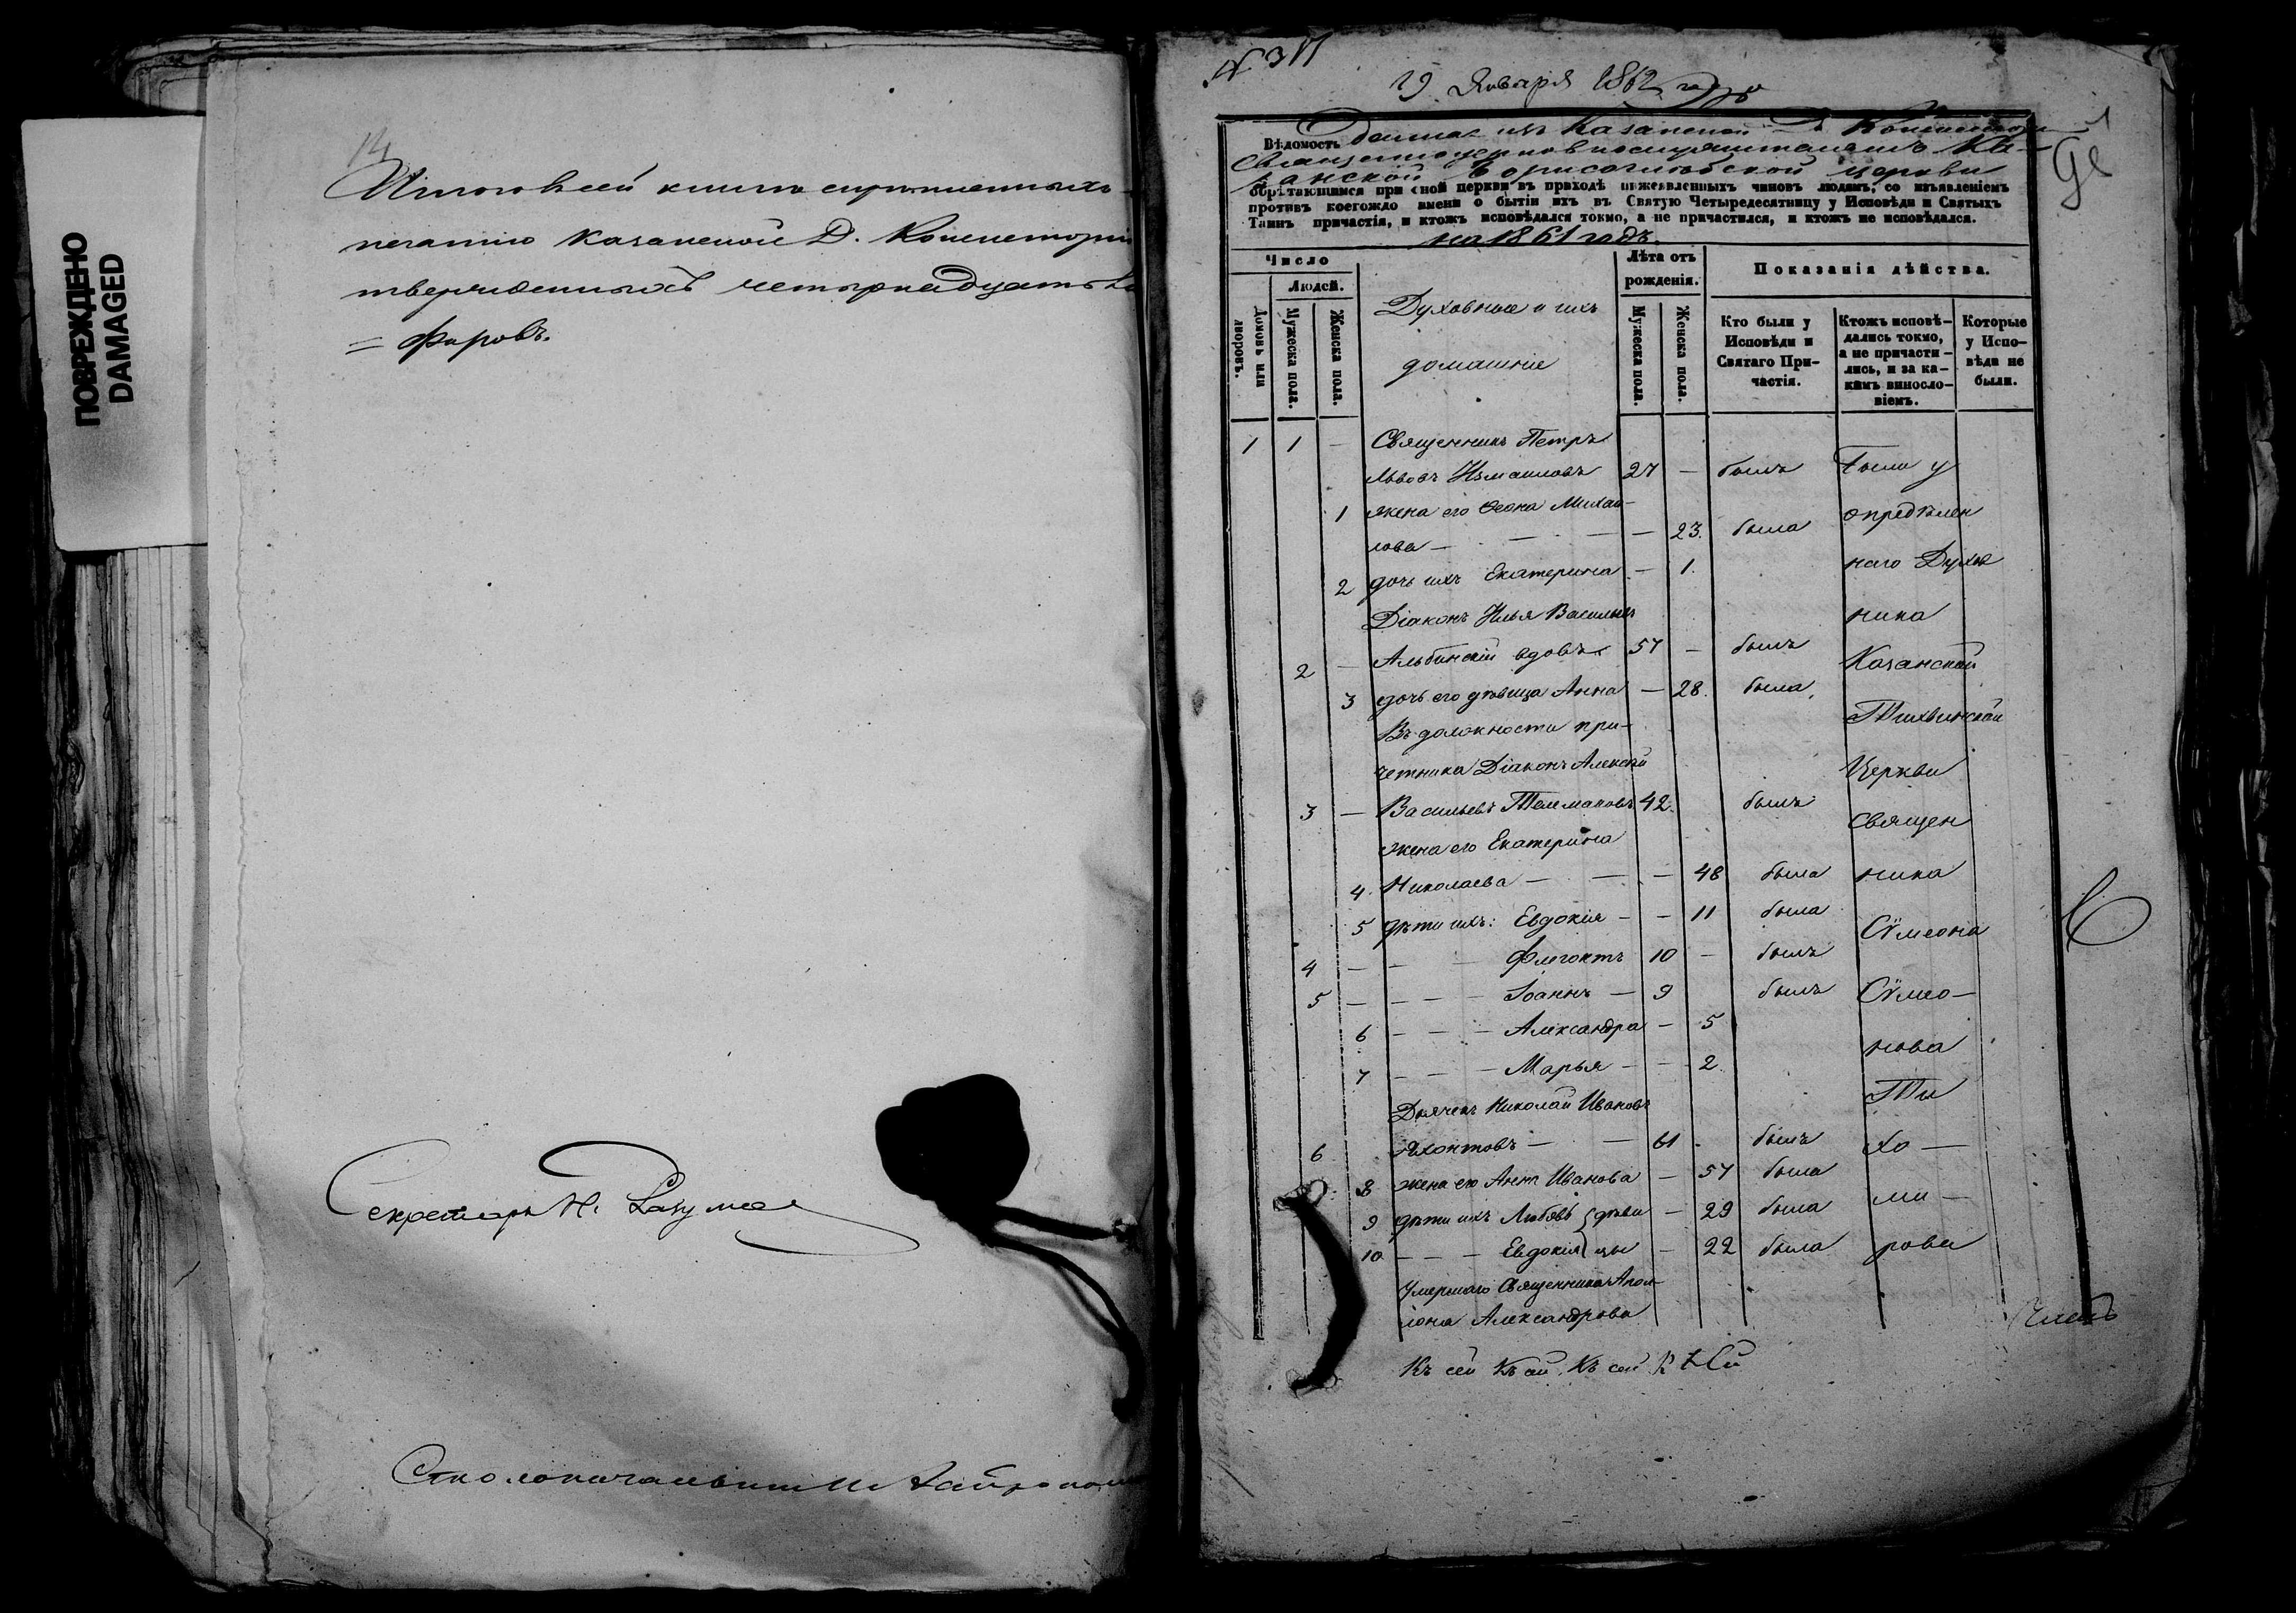 ПОВРЕЖДЕНО
DAMAGED
14
Итого всей книги скрепленныхъ
печатію Казанской Д. Консисторіи
твержденныхъ четырнадцать
Секретарь Н.
Столоначальникъ
N 311
19 Января 1862 года
Вѣдомость Данная изъ Казанской Д. Консисторіи
Священноцерковнослужителямъ Ка-
занской Борисоглѣбской церкви
обрѣтающимся при оной церкви въ приходѣ нижеявленныхъ чиновъ людямъ, со изъявленіемъ
противъ коегождо имени о бытіи ихъ въ Святую Четыредесятницу у Исповѣди и Святыхъ
Таинъ причастія, и ктожъ исповѣдался токмо, а не причастился, и ктожъ не исповѣдался.
на 1861 годъ.
Число
Людей.
Домовъ или дворовъ.
Мужеска пола.
Женска пола.
Духовные и ихъ
домашніе
Лѣта отъ
рожденія.
Мужеска пола.
Женска пола.
Показанія дѣйства.
Кто были у
Исповѣди и
Святаго При-
частія.
Ктожъ исповѣ-
дались токмо,
а не причасти-
лись, и за ка-
кимъ винносло-
віемъ.
Которые
у Испо-
вѣди не
были.
1 1 — Священникъ Петръ
Львовъ Измаиловъ 27 — былъ Были у
1 жена его Ѳеона Михаи-
лова — — — 23. была опредѣлен
2 дочь ихъ Екатерина — 1. наго Духов
Діаконъ Илья Васильевъ ника
2 — Альбинскій вдовъ 57 — былъ Казанской
3 дочь его дѣвица Анна — 28. была, Тихвинской
Въ должности при-
четника Діаконъ Алексѣй Церкви
3 — Васильевъ Телемаковъ 42. былъ Священ
жена его Екатерина
4. Николаева — — — 48 была ника
5 дѣти ихъ: Евдокія — — 11 была Сѵмеона
4 — — — Флегонтъ 10 — былъ
5 — — — Іоаннъ — 9 былъ Сѵмео-
6 — — — Александра — 5 нова
7 — — — Марья — — 2
Дьячекъ Николай Ивановъ Ти
6 Яхонтовъ — — 61 былъ хо-
8 жена его Анна Иванова — 57 была
9 дѣти ихъ Любовь дѣви — 29 была ми-
10 — — — Евдокія цы — 22 была рова
Умершаго Священника Апол-
лона Александрова
Къ сей Къ сей Къ сей